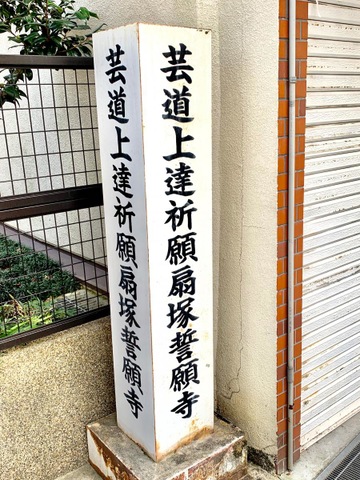 芸道上達祈願扇塚誓願寺
芸道上達祈願扇塚誓願寺